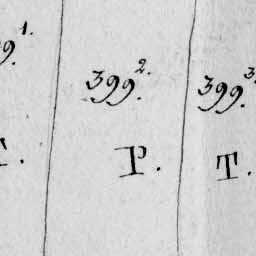 9.¹· 399.²· 399.³·
T. P. T.